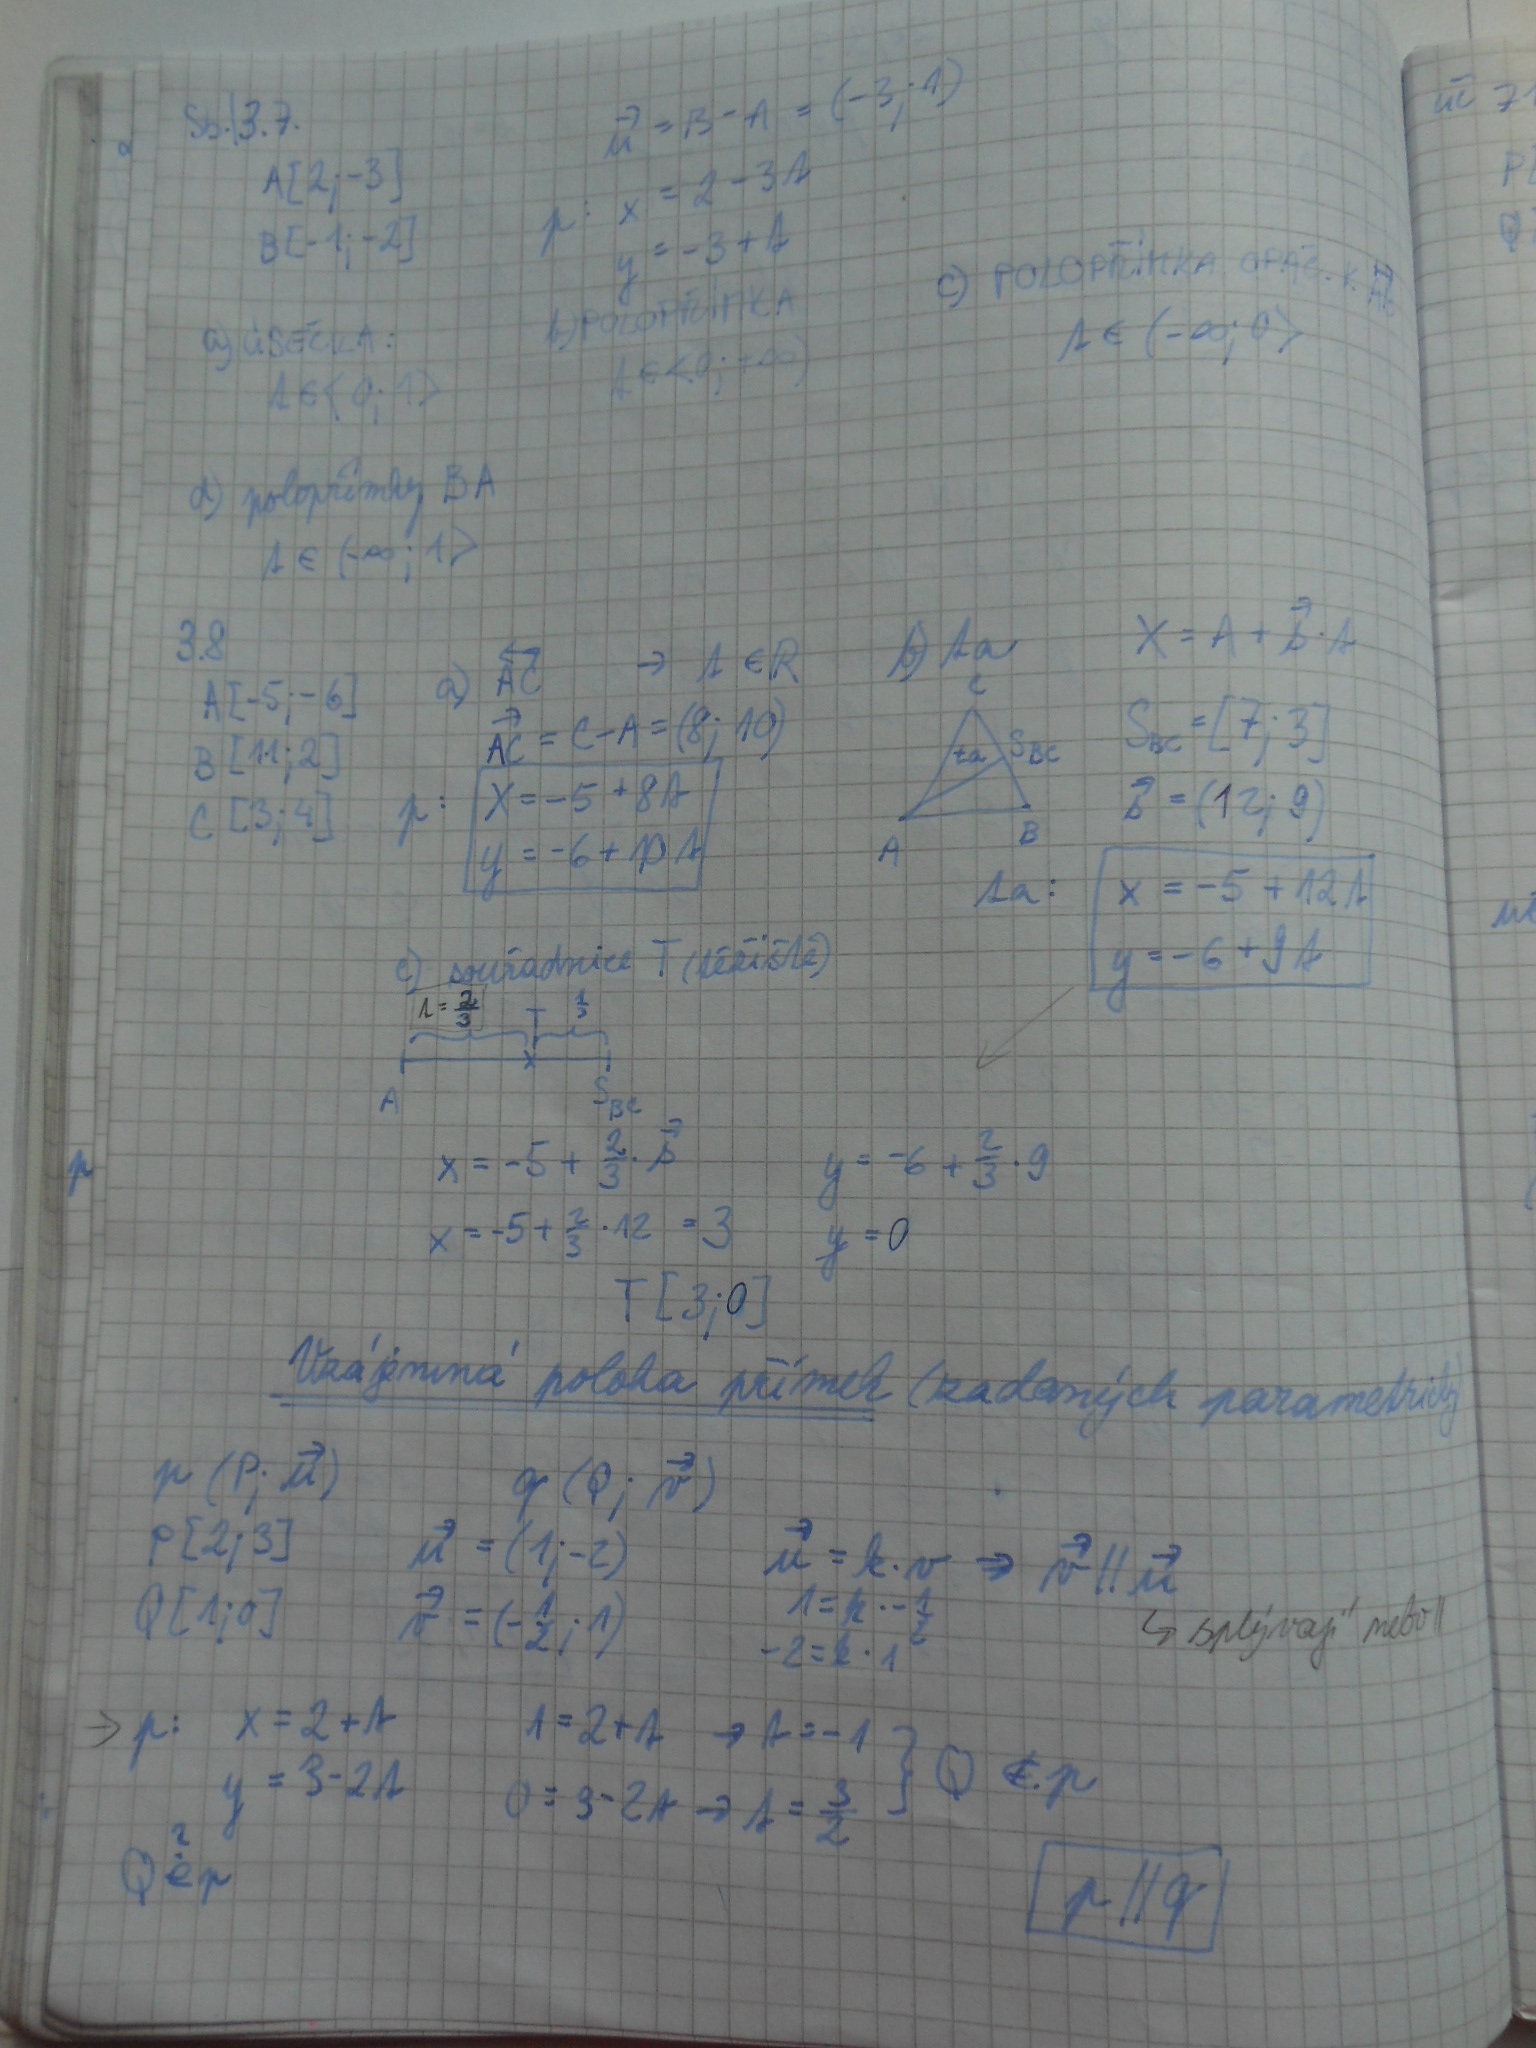 Sb. 3.7.
A[2;-3]
B[-1;-2]
u⃗ = B-A = (-3; 1)
p: x = 2-3t
y = -3+t
a) ÚSEČKA:
t∈⟨0; 1⟩
b) POLOPŘÍMKA
t∈⟨0; +∞)
c) POLOPŘÍMKA OPAČ. K AB
t∈(-∞; 0⟩
d) polopřímky BA
t∈(-∞; 1⟩
3.8
A[-5;-6]
B[11;2]
C[3;4]
a) AC → t∈R
AC = C-A = (8; 10)
p: x = -5+8t
y = -6+10t
b) ta
C
ta SBC
A B
X = A + s⃗·t
SBC = [7; 3]
s⃗ = (12; 9)
ta: x = -5+12t
y = -6+9t
c) souřadnice T (těžiště)
t = 2/3 T 1/3
A SBC
x = -5 + 2/3 · s⃗ y = -6 + 2/3 · 9
x = -5 + 2/3 · 12 = 3 y = 0
T[3;0]
Vzájemná poloha přímek (zadaných parametricky)
p(P; u⃗) q(Q; v⃗)
P[2;3] u⃗ = (1;-2) u⃗ = k·v → v⃗ ∥ u⃗
Q[1;0] v⃗ = (-1/2; 1) 1 = k·-1/2
-2 = k·1
↳ splývají nebo ∥
→ p: x = 2+t 1 = 2+t → t = -1
y = 3-2t 0 = 3-2t → t = 3/2 } Q ∉ p
Q ∈? p
p ∥ q